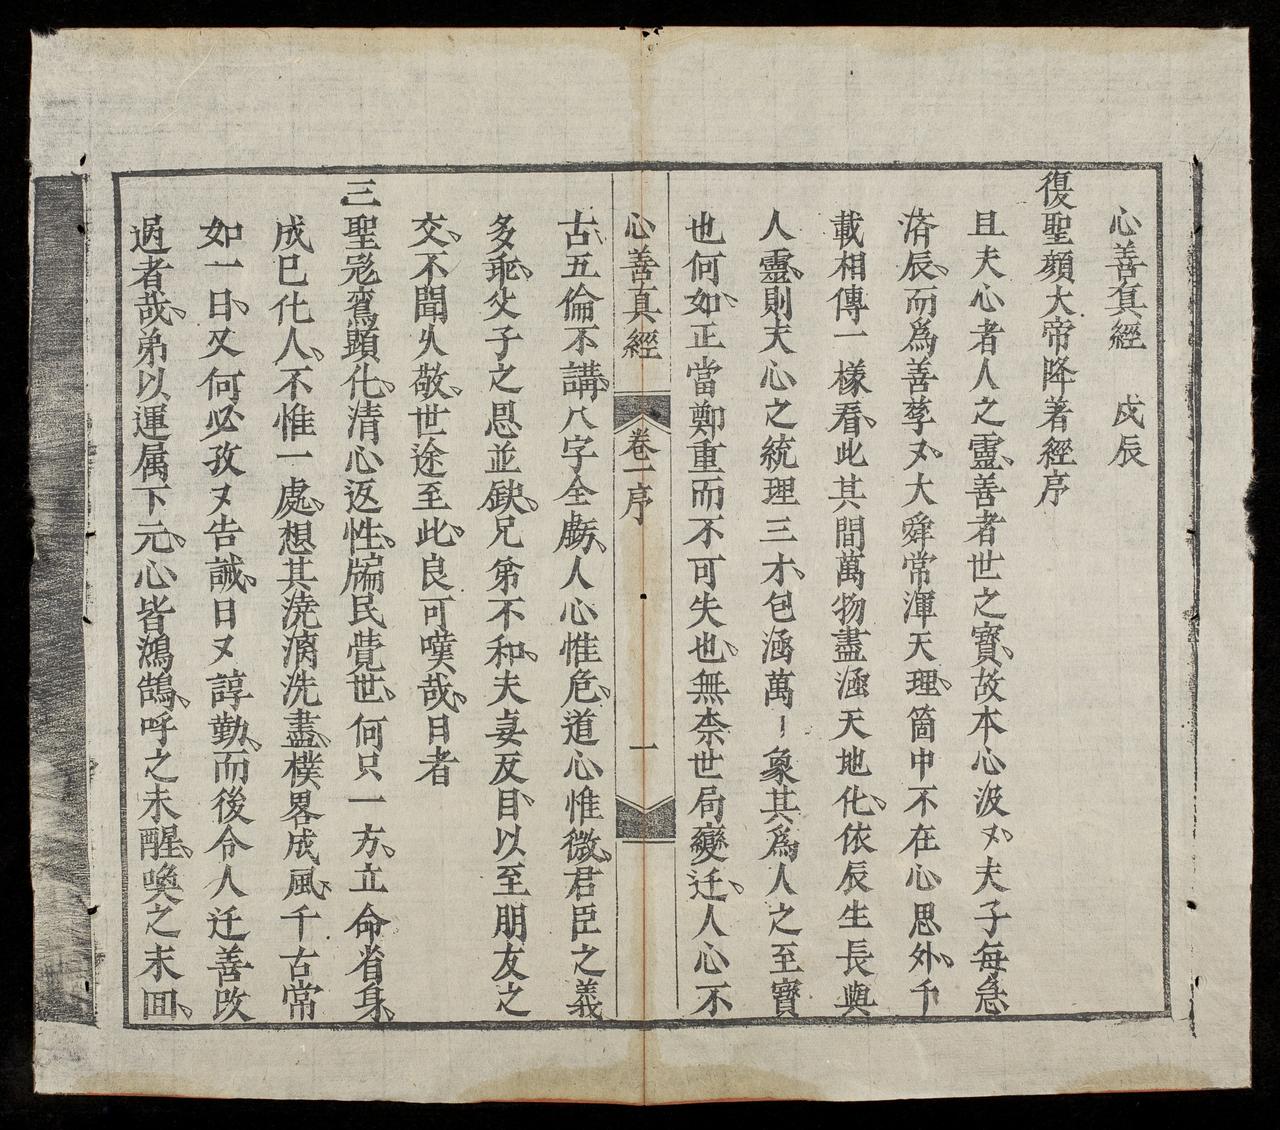 心善真經　戊辰
復聖顏大帝降著經序
且夫心者人之靈、善者世之寶、故本心汲又、夫子每急
済辰、而爲善孳又、大舜常渾天理、箇中不在心思外、千
載相傳一樣看、此其間萬物盡涵天地化、依辰生長與
人靈、則夫心之統理三才、包涵萬丨象其爲人之至寶
也何如、正當鄭重而不可失也、無柰世局變迁、人心不
心善真經　卷一序　一
古、五倫不講、八字全虧、人心惟危、道心惟微、君臣之義
多乖、父子之恩並缺、兄弟不和、夫妻反目、以至朋友之
交、不聞久敬、世途至此、良可嘆哉、日者
三聖君鸞顕化、清心返性、牖民覺世、何只一方、立命省身、
成己化人、不惟一處、想其澆漓洗盡、樸畧成風、千古常
如一日、又何必孜又告誡、日又諄勤、而後令人迁善改
過者哉、弟以運属下元、心皆鴻鵠、呼之未醒、喚之未回、